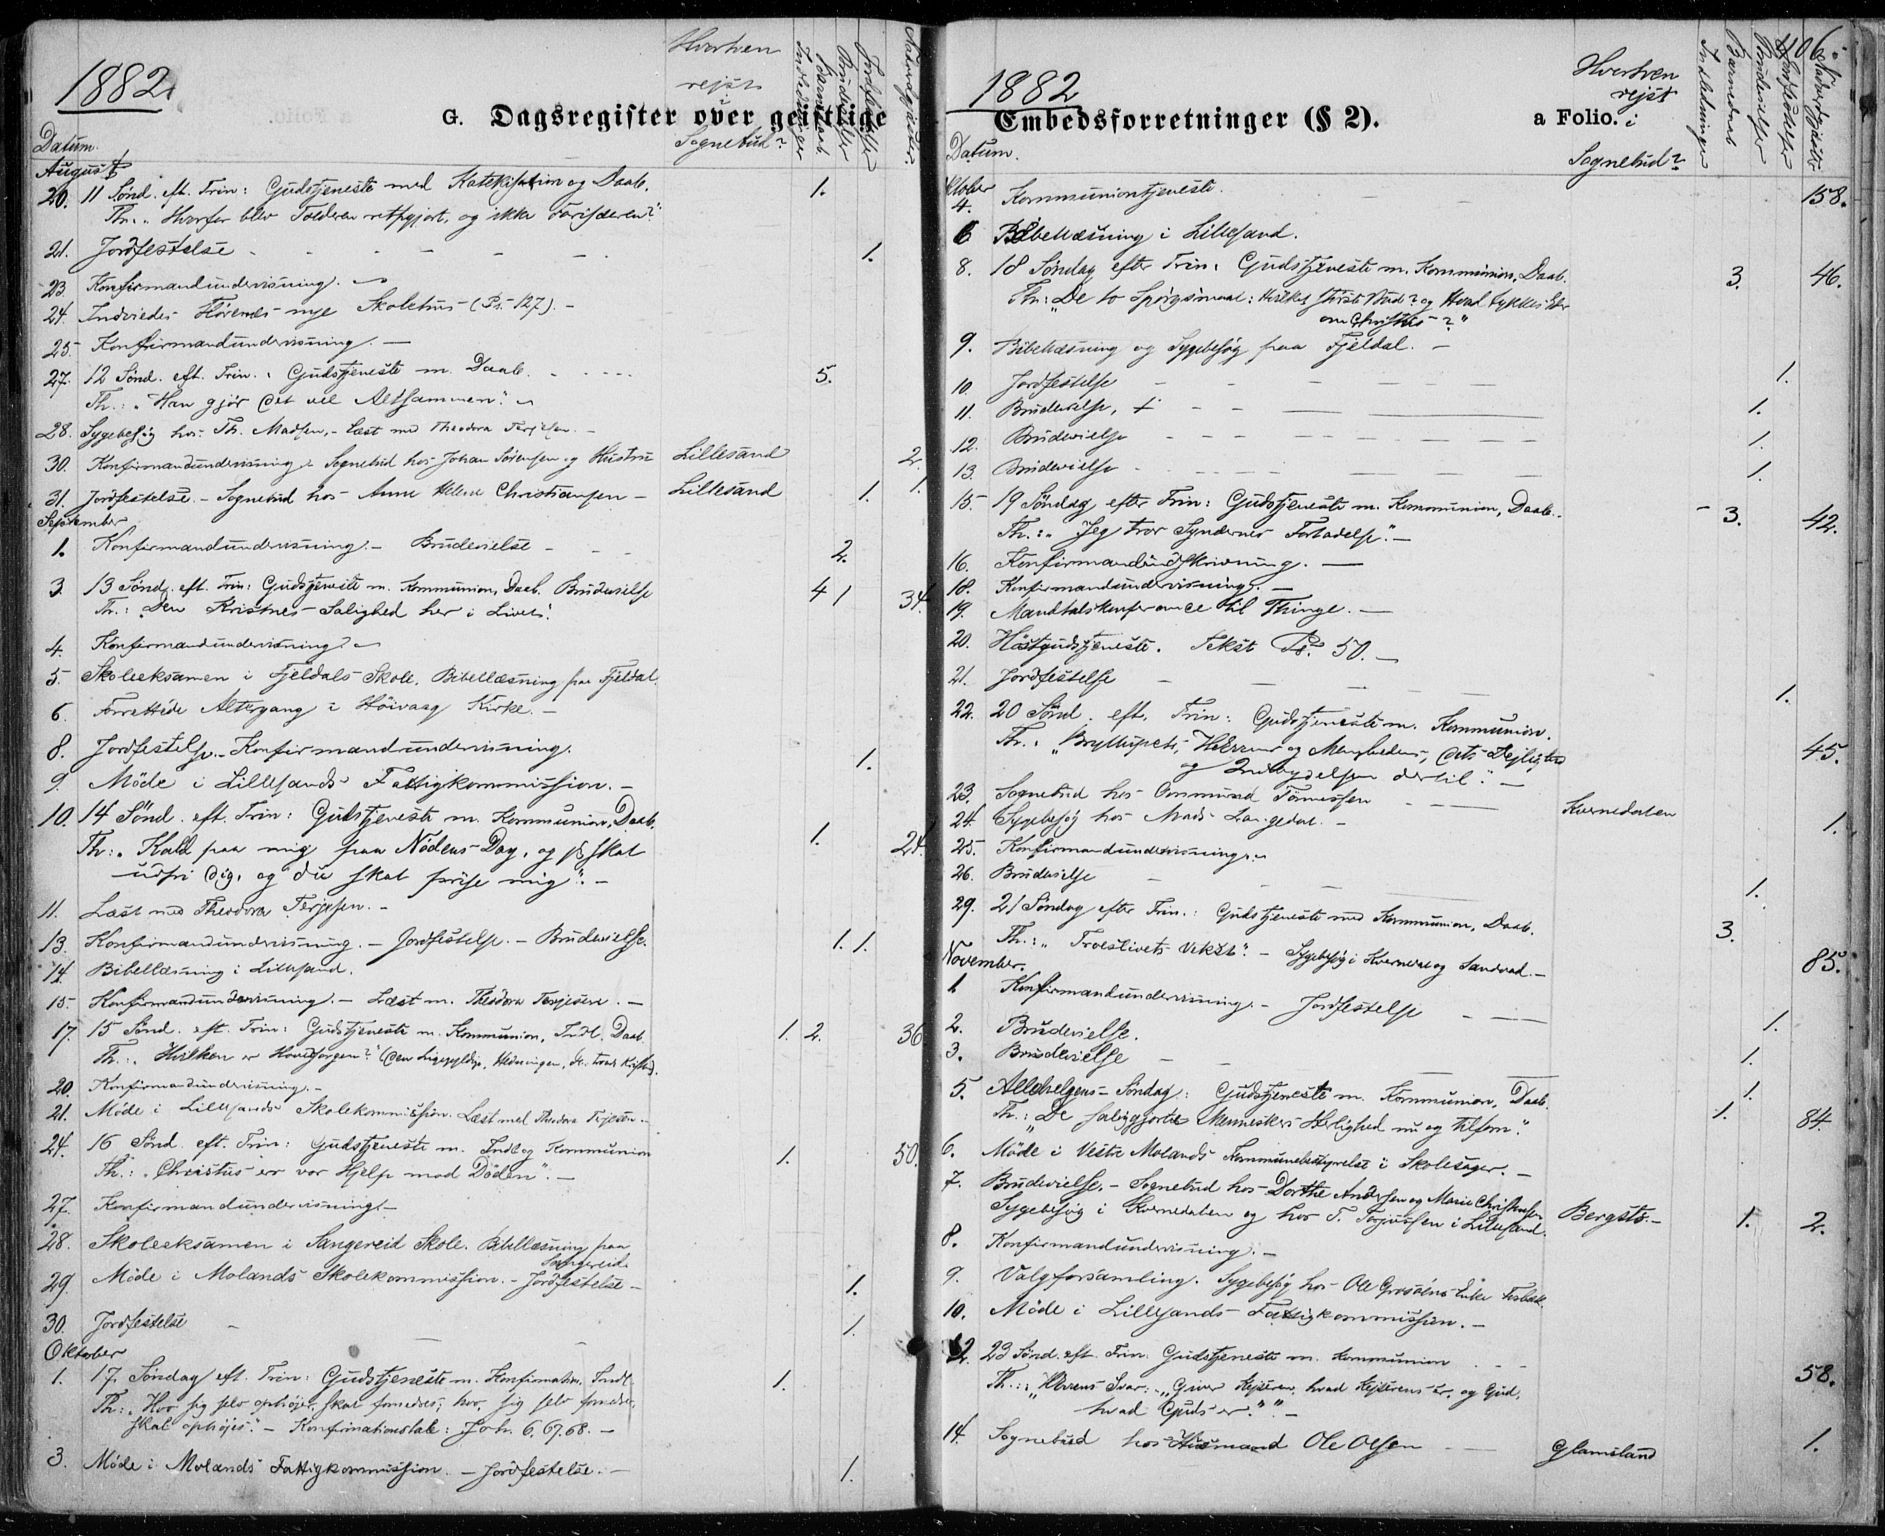 1882.
G. Dagsregister over geistlige
Hvorhen
rejst
i
Sognebud?
Indledninger
Barnedaab
Brudevielser
Jordfæstelser
Nadverdgjæster
Datum.
August
20. 11 Sønd. eft. Trin: Gudstjeneste med Katekisation og Daab. 1.
Th.: "Hvorfor blev Tolderen retfgjort, og ikke Farisæeren?"
21. Jordfestelse - - - - - - 1.
23. Konfirmandundervisning. -
24. Indviedes Hørenes nye Skolehus (Ps. 127). -
25. Konfirmandundervisning. -
27. 12 Sønd. eft. Trin.: Gudstjeneste m. Daab. - - - - 5.
Th.: "Han gjør det vel Altsammen". -
28. Sygebesøg hos Th. Madsen, - Læst med Theodora Terjesen. -
30. Konfirmandundervisning. Sognebud hos Johan Sørensen og Hustru Lillesand 2.
31. Jordfestelse. - Sognebud hos Anne Helene Christiansen - Lillesand 1. 1.
September
1. Konfirmandundervisning. - Brudevielse - - - 2.
3. 13 Sønd. eft. Trin: Gudstjeneste m. Kommunion, Daab. Brudevielse 4 1 34.
Th.: "Den Kristnes Salighed her i Livet".
4. Konfirmandundervisning. -
5. Skoleeksamen i Fjeldals Skole. Bibellæsning paa Fjeldal.
6. Forrettede Altergang i Høivaag Kirke. -
8. Jordfestelse. - Konfirmandundervisning. 1.
9. Møde i Lillesands Fattigkommission. -
10. 14 Sønd. eft. Trin: Gudstjeneste m. Kommunion, Daab. 1. 24.
Th.: "Kald paa mig paa Nødens Dag, og jeg skal
udfri dig, og du skal prise mig". -
11. Læst med Theodora Terjesen. -
13. Konfirmandundervisning. - Jordfestelse. - Brudevielse. 1. 1.
14. Bibellæsning i Lillesand.
15. Konfirmandundervisning. - Læst m. Theodora Terjesen. -
17. 15 Sønd. eft. Trin: Gudstjeneste m. Kommunion, Indl. Daab. 1. 2. 36
Th.: "Hvilken er Hovedsorgen?" (den ligegyldige, Hedningen, d.
20. Konfirmandundervisning. -
21. Møde i Lillesands Skolekommission. Læst med Theodora Terjesen. -
24. 16 Sønd. eft. Trin: Gudstjeneste m. Indl. og Kommunion 1. 50.
Th.: "Christus er vor Hjelp mod Døden". -
27. Konfirmandundervisning. -
28. Skoleeksamen i Sangereid Skole. Bibellæsning paa
Sangereid.
29. Møde i Molands Skolekommission. - Jordfestelse - 1.
30. Jordfestelse - - - 1.
Oktober
1. 17. Søndag eft. Trin: Gudstjeneste m. Konfirmation, Indl. 1.
Th.: "Hvo sig selv ophøjer, skal fornedres; hvo sig selv fornedrer,
skal ophøjes". - Konfirmationstale: Joh. 6, 67, 68. -
3. Møde i Molands Fattigkommission. - Jordfestelse. - 1.
1882
Embedsforretninger (§ 2).
a Folio.
406
Hvorhen
rejst
i
Sognebud?
Indledninger
Barnedaab
Brudevielser
Jordfæstelser
Nadverdgjæster
Datum.
Oktober
4. Kommuniontjeneste. 158.
6 Bibellæsning i Lillesand.
8. 18 Søndag efter Trin: Gudstjeneste m. Kommunion, Daab. 3. 46.
Th.: "De to Spørgsmaal: Hvilket første Bud? og Hvad tykkes Eder
om Christus?"
9. Bibellæsning og Sygebesøg paa Fjeldal. -
10. Jordfestelse - - - - - 1.
11. Brudevielse, + - - - - 1.
12. Brudevielse - - - - - 1.
13. Brudevielse - - - - - 1.
15. 19 Søndag efter Trin: Gudstjeneste m. Kommunion, Daab. - 3. 42.
Th.: "Jeg tror Syndernes Forladelse". -
16. Konfirmandindskrivning. -
18. Konfirmandundervisning. -
19. Mandtalskonferance til Thinge. -
20. Høstgudstjeneste. Tekst Ps. 50. -
21. Jordfestelse - - - - - 1.
22. 20 Sønd. eft. Trin: Gudstjeneste m. Kommunion. 45.
Th.: "Bryllupets, Herrens og Menighedens, dets Dejlighed
og Indbydelsen dertil". -
23. Sognebud hos Ommund Tønnessen - - Kvernedalen 1.
24. Sygebesøg hos Mads Langedal. -
25. Konfirmandundervisning. -
26. Brudevielse - - - 1.
29. 21 Søndag efter Trin.: Gudstjeneste med Kommunion, Daab. 3. 85.
Th.: "Troeslivets Vekst". - Sygebesøg i og Sandvad. -
November.
1 Konfirmandundervisning. - Jordfestelse - - 1.
2. Brudevielse. 1.
3. Brudevielse - - - 1.
5. Allehelgens-Søndag: Gudstjeneste m. Kommunion, Daab. 1. 84.
Th.: "De saliggjorte Menneskers Herlighed nu og tilforn".
6. Møde i Vestre Molands Kommunebestyrelse i Skolesager. -
7. Brudevielse. - Sognebud hos Dorthe Andersen og Marie Christensen Bergstø. - 1. 2.
Sygebesøg i Kvernedalen og hos T. Torjussen i Lillesand.
8. Konfirmandundervisning. -
9. Valgforsamling. Sygebesøg hos Ole Enke
10. Møde i Lillesands Fattigkommission. -
12. 23 Sønd. eft. Trin. Gudstjeneste m. Kommunion - - - 58.
Th.: "Herrens Svar: "Giver Kejseren, hvad Kejserens er, og Gud,
hvad Guds er."" -
14. Sognebud hos Husmand Ole Olsen - - Glamsland 1.